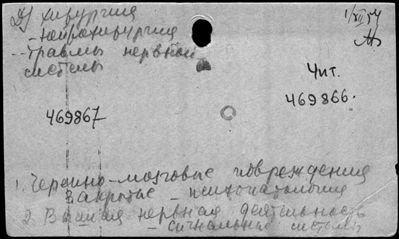 Д) хирургия
- нейрохирургия
- травмы нервной
системы
1/XII 54
Чит.
469866.
469867
1. Черепно-мозговые повреждения
закрытые - психопатология
2. Высшая нервная деятельность
- сигнальные системы